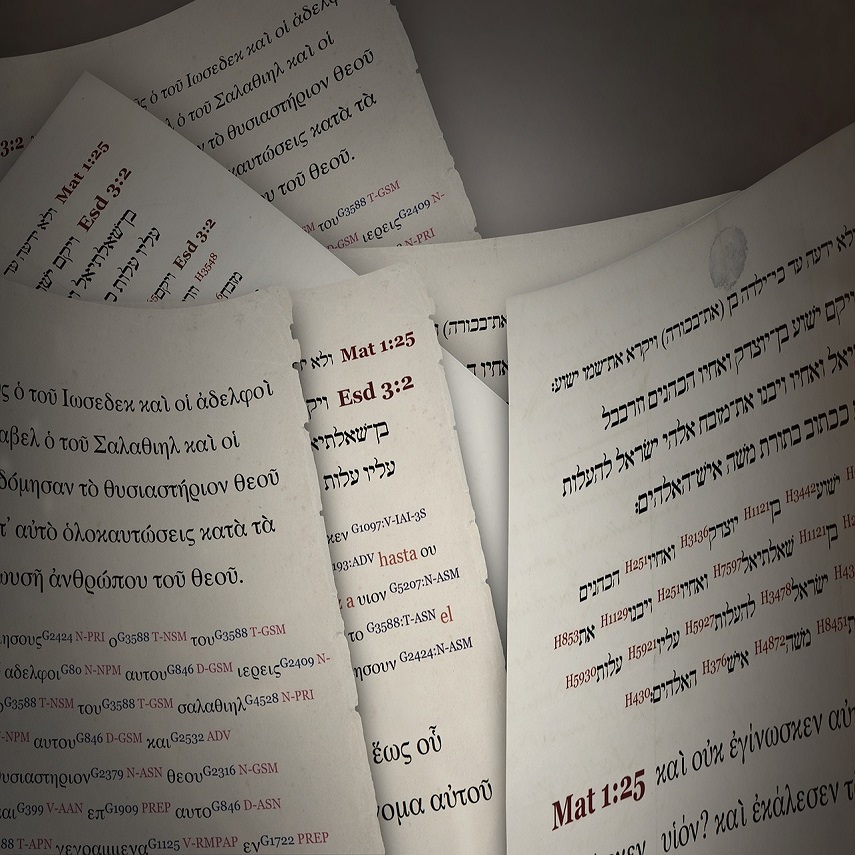 ς ὁ τοῦ Ιωσεδεκ καὶ οἱ ἀδελφ
ὁ τοῦ Σαλαθιηλ καὶ οἱ
τὸ θυσιαστήριον θεοῦ
καυτώσεις κατὰ τὰ
υ τοῦ θεοῦ.
τουG3588 T-GSM
D-GSM ιερειςG2409 N-
N-PRI
3:2
Mat 1:25 ולא ידעה עד
Esd 3:2 ויקם ישו
בן־שאלתיאל ו
עליו עלות כ
Esd 3:2 ויקם
H3548
מזבח
את־בכורה)
ואחיו ה
ς ὁ τοῦ Ιωσεδεκ καὶ οἱ ἀδελφοὶ
αβελ ὁ τοῦ Σαλαθιηλ καὶ οἱ
δόμησαν τὸ θυσιαστήριον θεοῦ
τ’ αὐτὸ ὁλοκαυτώσεις κατὰ τὰ
ωυσῆ ἀνθρώπου τοῦ θεοῦ.
ησουςG2424 N-PRI οG3588 T-NSM τουG3588 T-GSM
αδελφοιG80 N-NPM αυτουG846 D-GSM ιερειςG2409 N-
οG3588 T-NSM τουG3588 T-GSM σαλαθιηλG4528 N-PRI
N-NPM αυτουG846 D-GSM καιG2532 ADV
θυσιαστηριονG2379 N-ASN θεουG2316 N-GSM
αιG399 V-AAN επG1909 PREP αυτοG846 D-ASN
88 T-APN γεγραμμεναG1125 V-RMPAP ενG1722 PREP
Mat 1:25 ולא י
Esd 3:2 ויק
בן־שאלתיא
עליו עלות
κεν G1097:V-IAI-3S
193:ADV hasta ου
a υιον G5207:N-ASM
το G3588:T-ASN el
ησουν G2424:N-ASM
ἕως οὗ
νομα αὐτοῦ
ולא ידעה עד כי־ילדה בן (את־בכורה) ויקרא את־שמו ישוע׃
ויקם ישוע בן־יוצדק ואחיו הכהנים וזרבבל
יאל ואחיו ויבנו את־מזבח אלהי ישראל להעלות
ככתוב בתורת משה איש־האלהים׃
ישועH3442 בןH1121 יוצדקH3136 ואחיוH251 הכהנים
בןH1121 שאלתיאלH7597 ואחיוH251 ויבנוH1129 אתH853
ישראלH3478 להעלותH5927 עליוH5921 עלותH5930
H8451 משהH4872 אישH376 האלהים׃H430
Mat 1:25 καὶ οὐκ ἐγίνωσκεν αὐ
υἱόν? καὶ ἐκάλεσεν τ